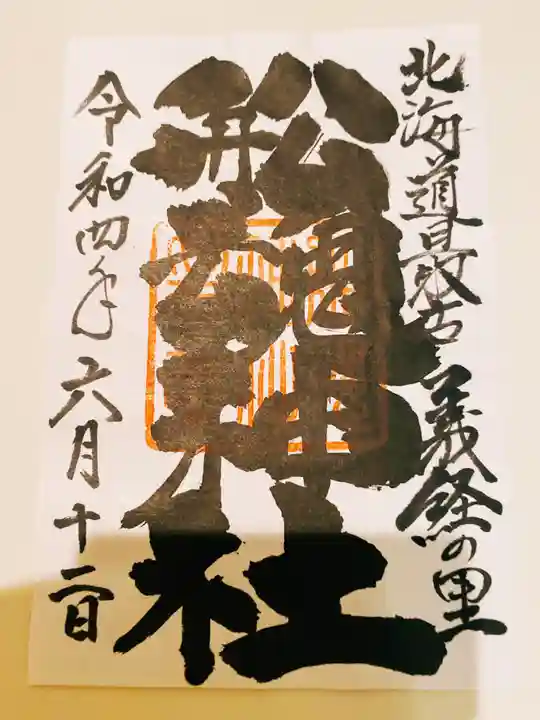 北海道最古 義経の里
舩魂神社
令和四年六月十二日